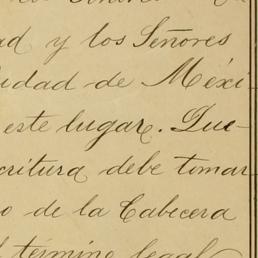 ad y los Señores
idad de Méxi-
este lugar. Que
critura debe tomar
o de la Cabecera
l término legal